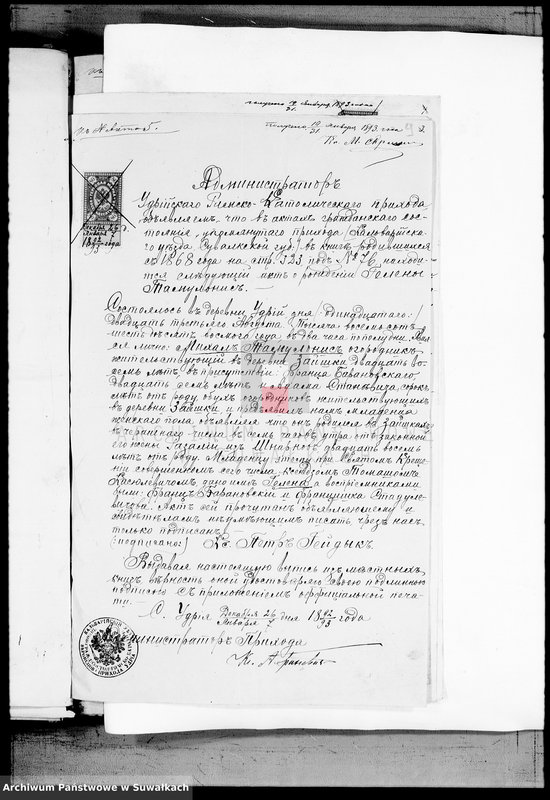 получено 19/31 января 1893 года
Къ № акта 5.
получено 19/31 января 1893 года
Кс. М.
Администраторъ
Удрійскаго Римско-Католическаго прихода
объявляетъ что въ актахъ гражданскаго сос-
тоянія, упомянутаго прихода (Кальварійска-
го уѣзда Сувалкской губ.) въ книгѣ родившихся
съ 1868 года на стр. 323 подъ № 76, находи-
тся слѣдующій актъ о рожденіи Гелены
Тамулонисъ. —
Состоялось въ деревни Удрій дня (одинадцатаго)
двадцать третьяго Августа, Тысяча восемь сотъ
шестьдесятъ восьмого года въ два часа пополудни. Яви-
лся лично: Михалъ Тамулонисъ огородникъ
жительствующій въ деревни Зайшки двадцать во-
семь лѣтъ, въ присутствіи: Франца Барановскаго
двадцать семь лѣтъ и Станкевича, сорокъ
лѣтъ отъ роду обоихъ огородниковъ жительствующихъ
въ деревни Зайшки, и предъявилъ намъ младенца
женскаго пола объявляя что онъ родился въ Зайшкахъ
вчерашняго числа въ семь часовъ утра, отъ законной
его жены Розаліи изъ двадцать восемь
лѣтъ отъ роду. Младенцу этому при Святомъ Креще-
ніи совершенномъ сего числа, ксендзомъ Томашомъ
дано имя Гелена а воспріемниками
были: Францъ Барановскій и Францишка
Актъ сей прочтанъ объявляющему и
свидѣтелямъ неумѣющимъ писать чрезъ насъ
только подписанъ.
(подписано:) Кс. Петръ Гейдыкъ.
Выдавая настоящую выпись изъ мѣстныхъ
книгъ вѣрность оной удостовѣряю своего подлинною
подписью съ приложеніемъ официальной печа-
ти.
С. Удрія Декабря 26/Января 7 дня 1892/93 года
Администраторъ Прихода
Кс. А.
Archiwum Państwowe w Suwałkach